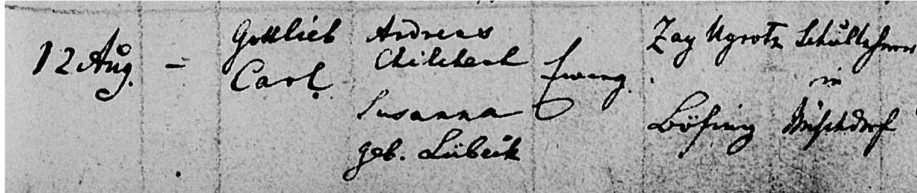 12 Aug. –
Gottlieb
Carl.
Andreas
Chilibeck
Susanna
geb. Lübeck
Evang.
Zay Ugrotz Schullehrer
in
Böhing Bischdorf